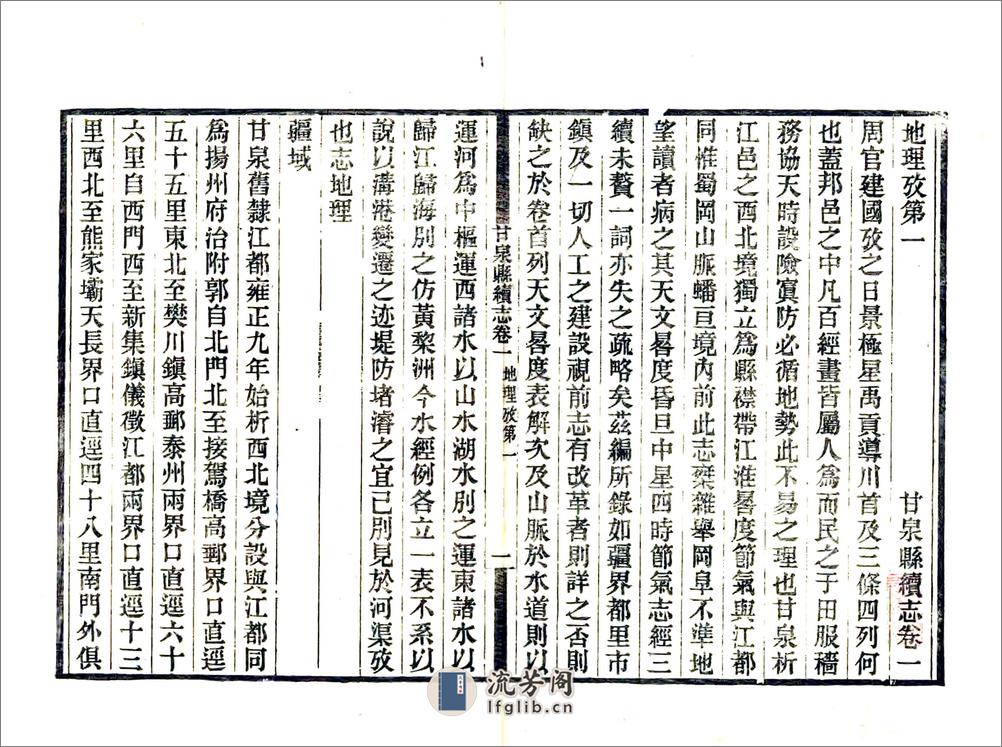 地理攷第一　甘泉縣續志卷一
周官建國攷之日景極星禹貢導川首及三條四列何
也蓋邦邑之中凡百經畫皆屬人爲而民之于田服穡
務協天時設險寘防必循地勢此不易之理也甘泉析
江邑之西北境獨立爲縣襟帶江淮晷度節氣與江都
同惟蜀岡山脈蟠亘境內前此志乘雜舉岡阜不準地
望讀者病之其天文晷度昏旦中星四時節氣志經三
續未贅一詞亦失之疏略矣茲編所錄如疆界都里市
鎮及一切人工之建設視前志有改革者則詳之否則
缺之於卷首列天文晷度表解次及山脈於水道則以
甘泉縣續志卷一　地理攷第一　一
運河爲中樞運西諸水以山水湖水別之運東諸水以
歸江歸海別之仿黃棃洲今水經例各立一表不系以
說以溝港變遷之迹堤防堵濬之宜已別見於河渠攷
也志地理
疆域
甘泉舊隸江都雍正九年始析西北境分設與江都同
爲揚州府治附郭自北門北至接駕橋高郵界口直逕
五十五里東北至樊川鎮高郵泰州兩界口直逕六十
六里自西門西至新集鎮儀徵江都兩界口直逕十三
里西北至熊家壩天長界口直逕四十八里南門外俱
流芳阁
lfglib.cn